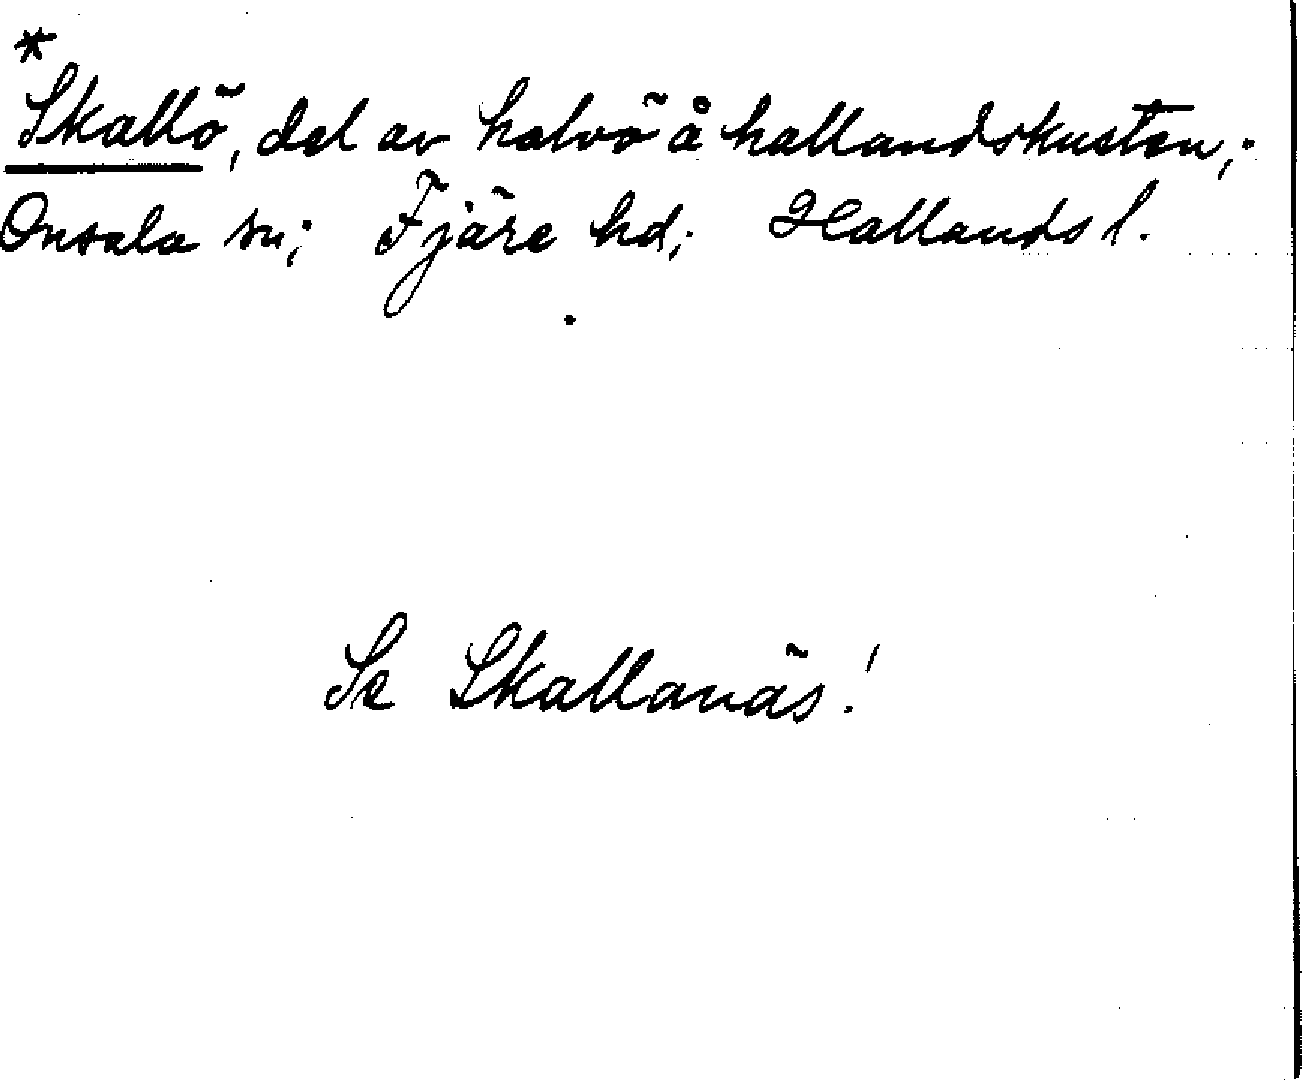 *
Skallö, del av halvö å hallandskusten;
Onsala sn; Fjäre hd; Hallands l.
Se Skallanäs!